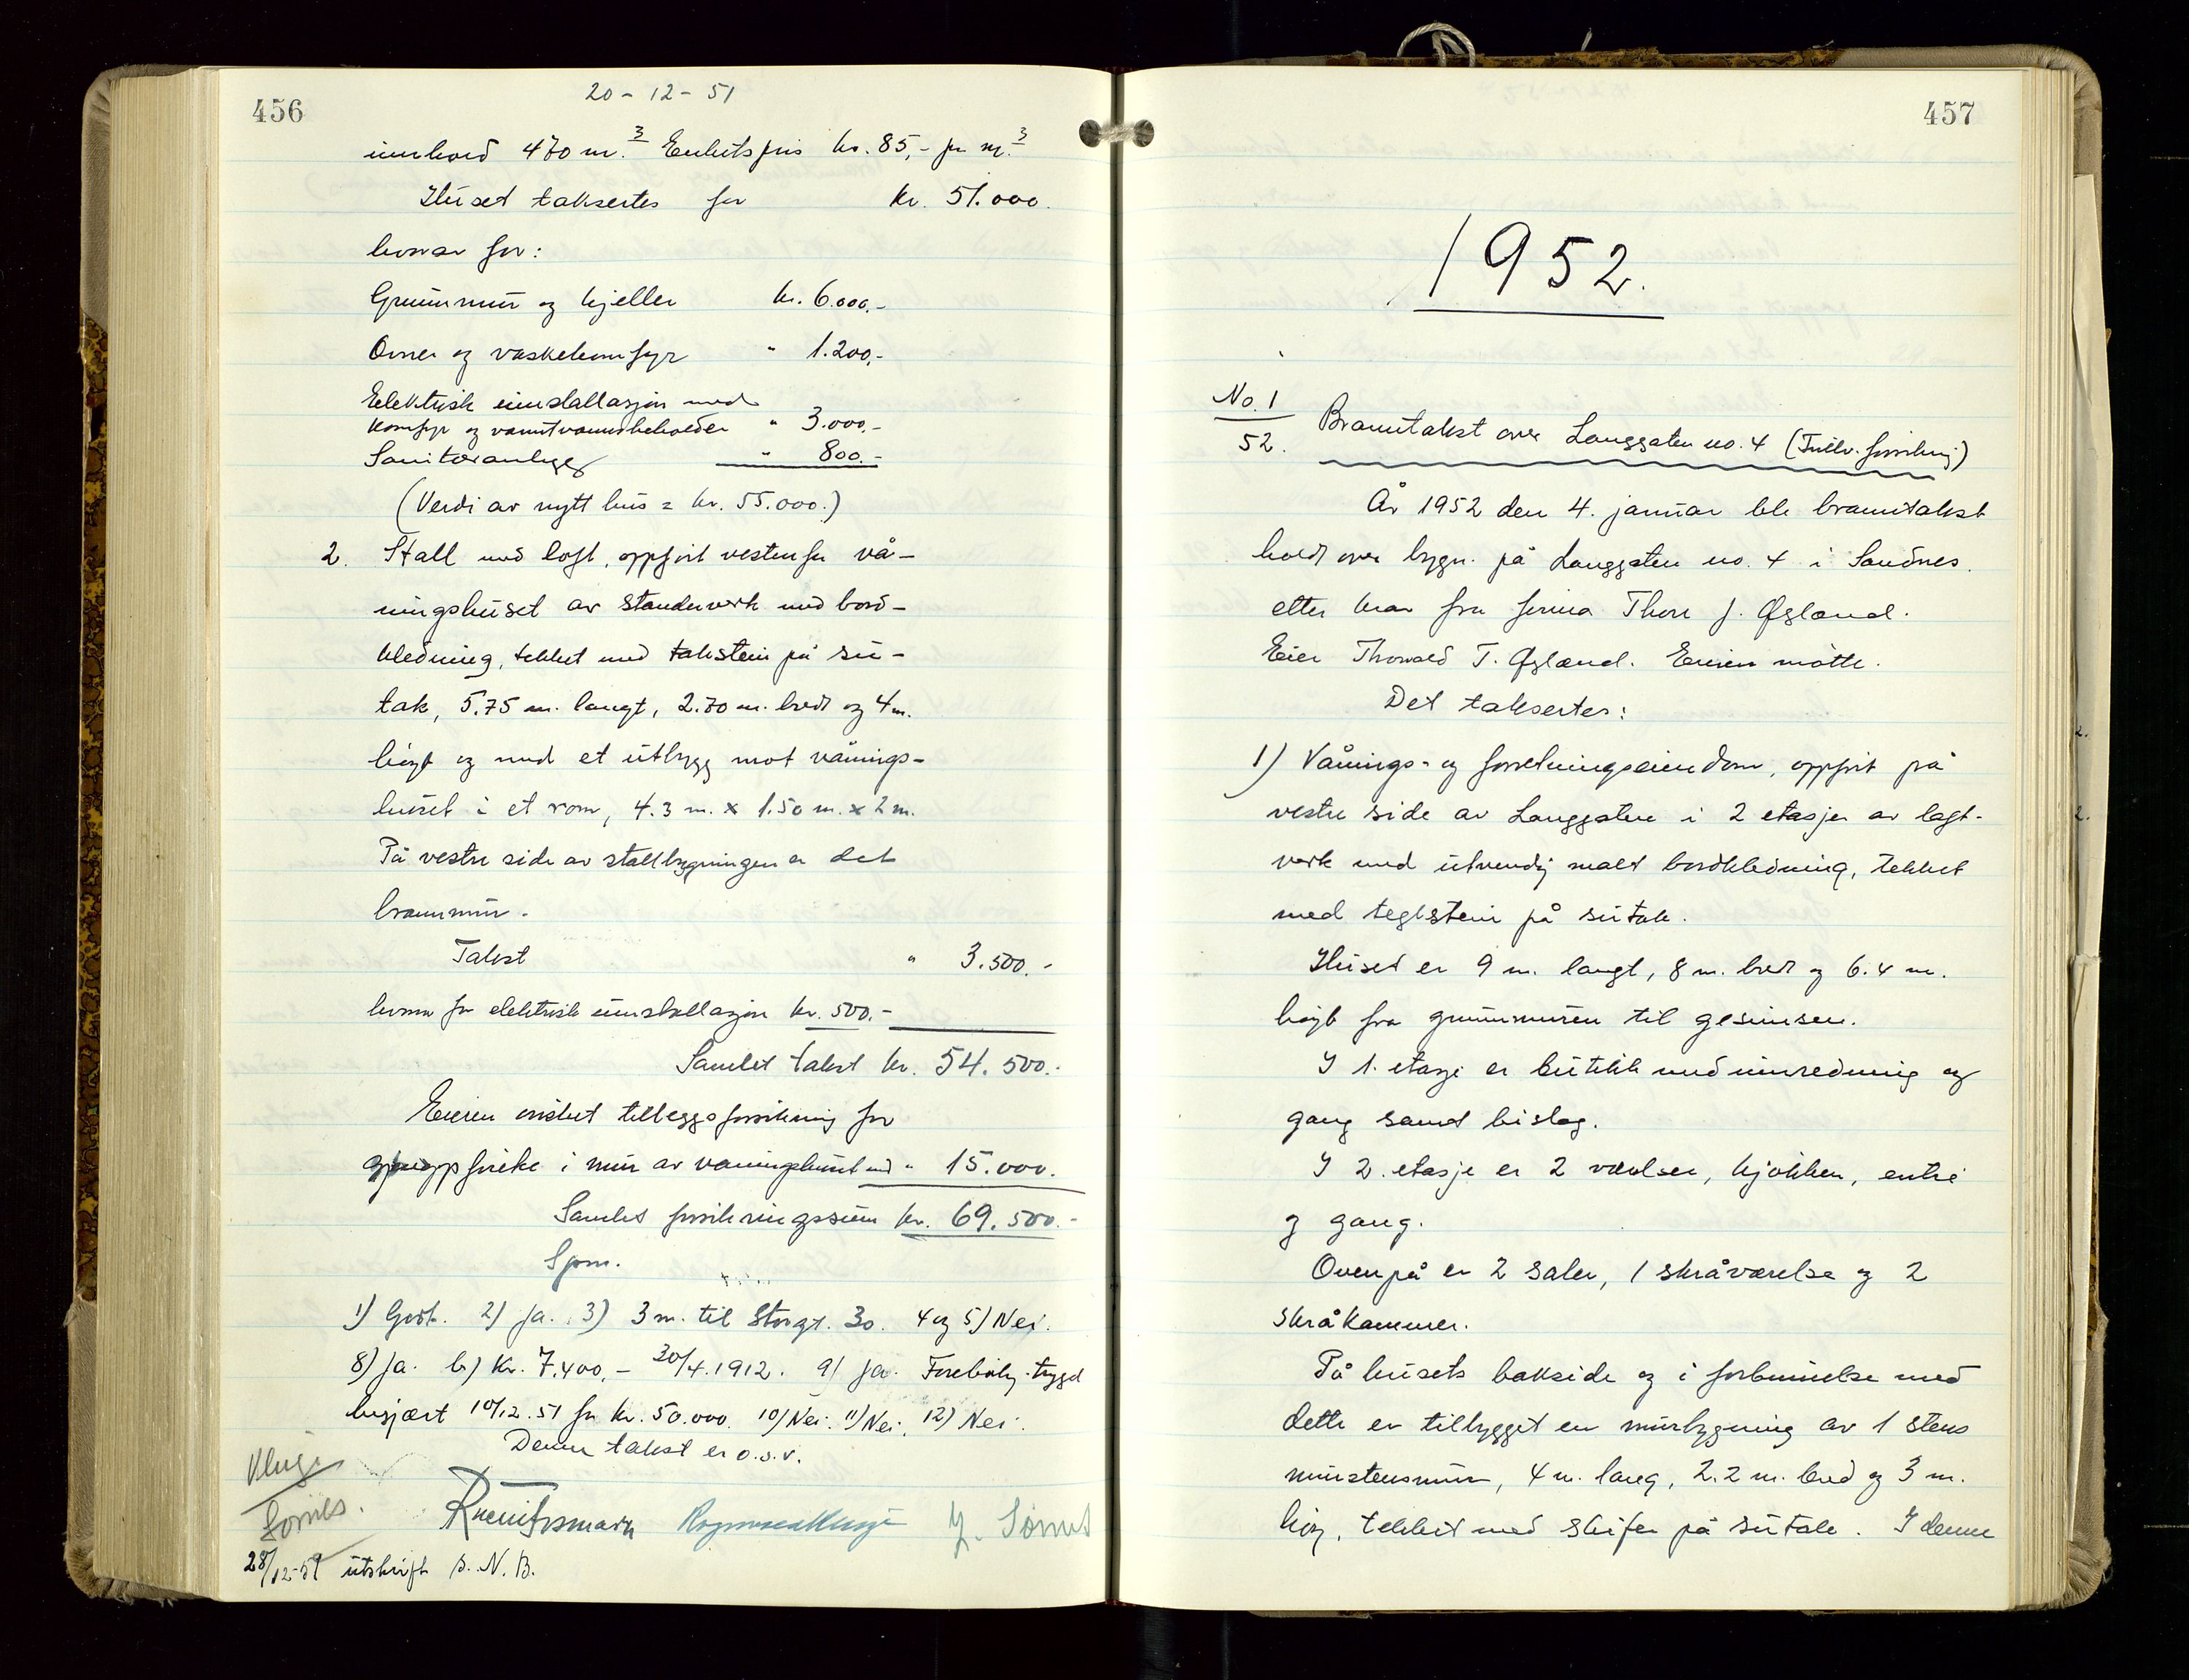 456
20-12-51
innhold 470 m.3 Enhetspris kr. 85,- pr m.3
Huset takseres for kr. 51.000.
hvorav for:
Grunnmur og kjeller kr. 6.000.-
Ovner og vaskekomfyr " 1.200,-
Elektrisk innstallasjon med
komfyr og varmtvannsbeholder " 3.000,-
Sanitæranlegg " 800.-
(Verdi av nytt hus = kr. 55.000.)
2. Stall med loft, oppført vestenfor vå-
ningshuset av standerverk med bord-
kledning, tekket med takstein på su-
tak, 5.75 m. langt, 2.70 m. bredt og 4 m.
høyt og med et utbygg mot vånings-
huset i et rom, 4.3 m. x 1.50 m. x 2 m.
På vestre side av stallbygningen er det
brannmur.
Takst " 3.500.-
hvorav for elektrisk innstallasjon kr. 500.-
Samlet takst kr. 54.500.-
Eieren ønsket tilleggsforsikring for
gjenoppførelse i mur av våningshuset med " 15.000.
Samlet forsikringssum kr. 69.500.-
Spm.
1) Godt. 2) Ja. 3) 3 m. til Storgt. 30. 4 og 5) Nei.
8) Ja. b) Kr. 7.400,- 30/4.1912. 9) Ja. Forebyg-trygd
besjært 10/12.51 for kr. 50.000. 10) Nei. 11) Nei. 12) Nei.
Denne takst er o.s.v.
Kluge
Sømes.
28/12-51 utskrift B.N.B.
457
1952.
No. 1
52.
Branntakst over Langgaten no. 4 (Frilv. forsikring)
År 1952 den 4. januar ble branntakst
holdt over bygn. på Langgaten no. 4 i Sandnes.
etter krav fra firma Thore J. Øgland.
Eier Thorvald T. Øgland. Eieren møtte.
Det takseres:
1) Vånings- og forretningseiendom, oppført på
vestre side av Langgaten i 2 etasjer av lagt-
verk med utvendig malt bordkledning, tekket
med teglstein på sutak.
Huset er 9 m. langt, 8 m. bredt og 6.4 m.
høyt fra grunnmuren til gesimsen.
I 1. etasje er butikk med innredning og
gang samt bislag.
I 2. etasje er 2 værelser, kjøkken, entré
og gang.
Ovenpå er 2 saler, 1 skråværelse og 2
skråkammer.
På husets bakside og i forbindelse med
dette er tilbygget en murbygning av 1 stens
murstensmur, 4 m. lang, 2.2 m. bred og 3 m.
høy, tekket med skifer på sutak. I denne